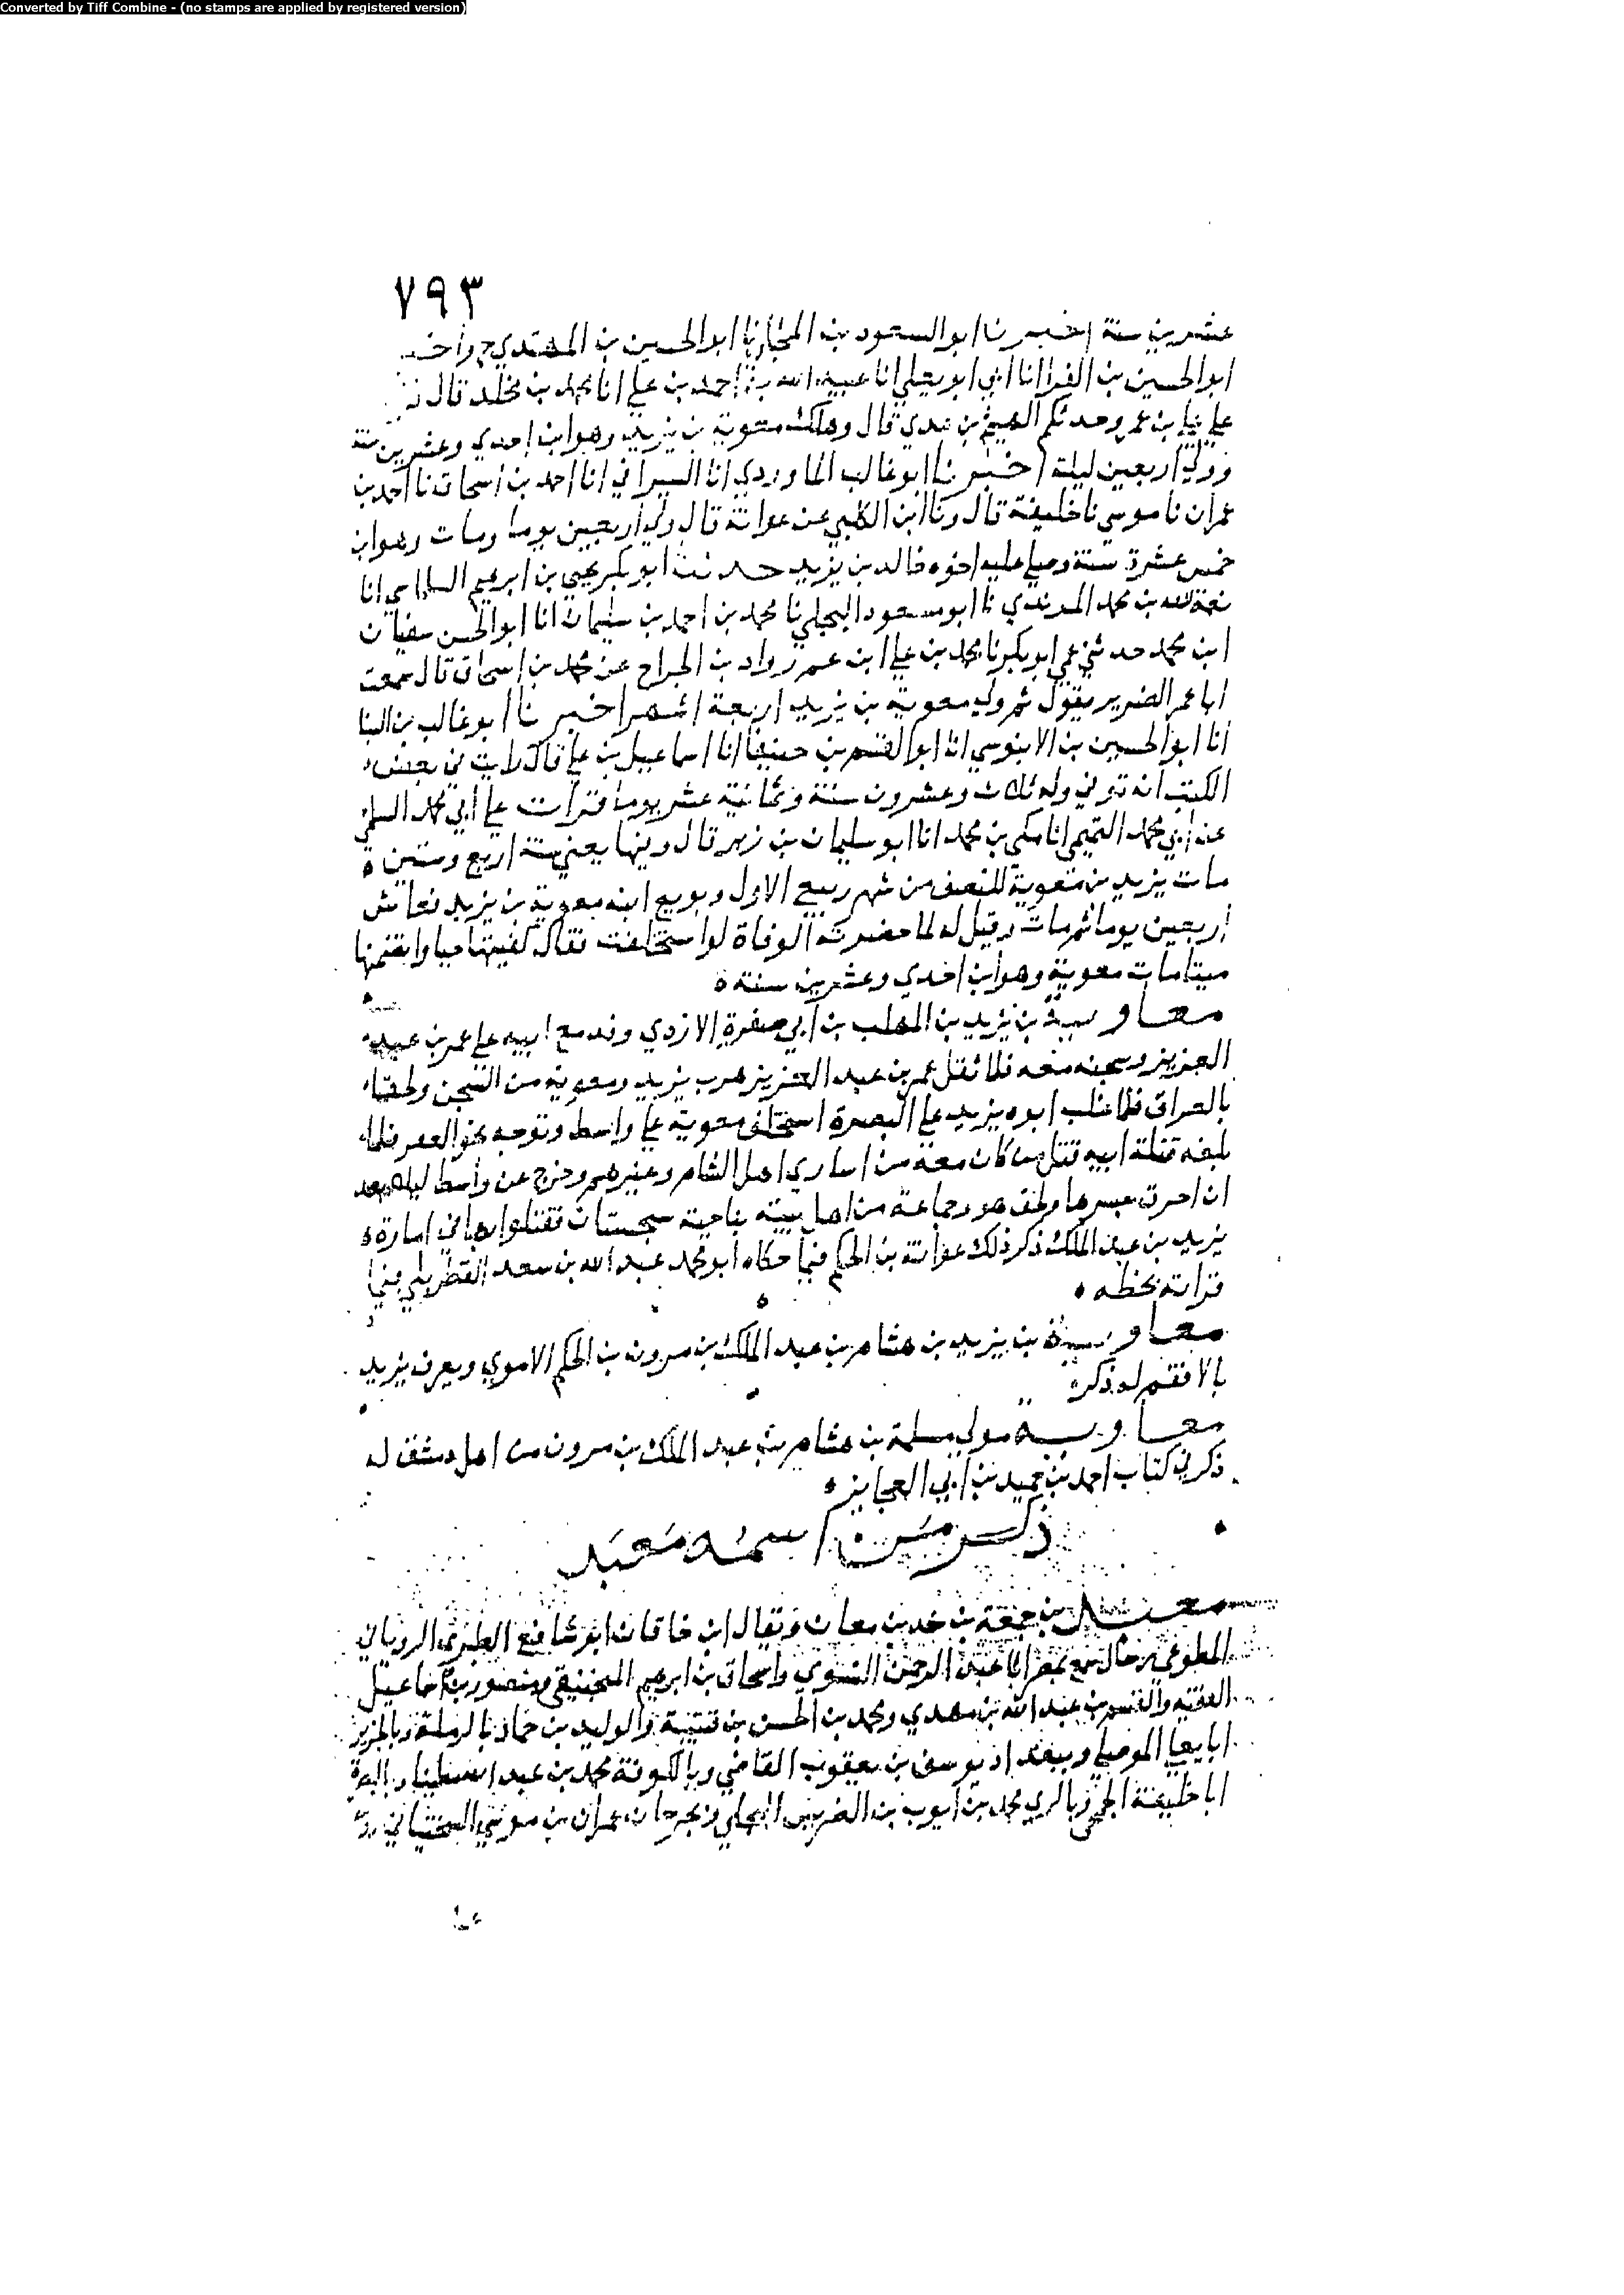 Converted by Tiff Combine - (no stamps are applied by registered version)
٧٩٣
عشرين سنة اخبرنا ابو السعود بن المجلي نا ابو الحسين بن المهتدي ح واخبـ
ابو الحسين بن الفرا انا ابي ابو يعلي انا عبيد الله بن احمد بن علي انا محمد بن مخلد قال
علي بن عمرو حدثكم الهيثم بن عدي قال وهلك معوية بن يزيد وهو ابن احدي وعشرين سنة
وولي اربعين ليلة اخبرنا ابو غالب الماوردي انا السيرافي انا احمد بن اسحاق نا احمد بن
عمران نا موسي نا خليفة قال ونا ابن الكلبي عن عوانة قال ولي اربعين يوما ومات وهو ابن
خمس عشرة سنة وصلي عليه اخوه خالد بن يزيد حدثنا ابو بكر يحيي بن ابرهيم السلماسي انا
نعمة الله بن محمد المرندي نا ابو مسعود البجلي نا محمد بن احمد بن سليمان انا ابو الحسن سفيان
ابن محمد حدثني عمي ابو بكر نا محمد بن علي ابن عم رواد بن الجراح عن محمد بن اسحاق قال سمعت
ابا عمر الضرير يقول ثم ولي معوية بن يزيد اربعة اشهر اخبرنا ابو غالب بن البنا
انا ابو الحسين بن الابنوسي انا ابو القسم بن حنيفا انا اسماعيل بن علي قال رايت في بعض
الكتب انه توفي وله ثلاث وعشرون سنة وثمانية عشر يوما قرات علي ابي محمد السلمي
عن ابي محمد التميمي انا مكي بن محمد انا ابو سليمان بن زبر قال وفيها يعني سنة اربع وستين
مات يزيد بن معوية للنصف من شهر ربيع الاول وبويع ابنه معوية بن يزيد فعاش
اربعين يوما ثم مات وقيل له لما حضرته الوفاة لو استخلفت فقال كفيتها حيا واتضمنها
ميتا مات معوية وهو ابن احدي وعشرين سنة
معاوية بن يزيد بن المهلب بن ابي صفرة الازدي وفد مع ابيه علي عمر بن عبد
العزيز وسجنه معه فلما ثقل عمر بن عبد العزيز هرب يزيد ومعوية من السجن ولحقا
بالعراق فلما غلب ابوه يزيد علي البصرة استخلف معوية علي واسط وتوجه نحو العقر فلما
بلغه قتلة ابيه قتل من كان معه من اساري اهل الشام وغيرهم وخرج عن واسط ليلا بعد
ان احرق جسرها ولحق هو وجماعة من اهل بيته بناحية سجستان فقتلوا بها في امارة
يزيد بن عبد الملك ذكر ذلك عوانة بن الحكم فيما حكاه ابو محمد عبد الله بن سعد القطربلي فيما
قراته بخطه
معاوية بن يزيد بن هشام بن عبد الملك بن مرون بن الحكم الاموي ويعرف يزيد
بالافقم له ذكر
معاوية مولي مسلمة بن هشام بن عبد الملك بن مرون من اهل دمشق له
ذكر في كتاب احمد بن حميد بن ابي العجايز
ذكر من اسمه معبد
معبد بن جمعة بن خاقان ابو شافع الطبري الروياني
المطوعي رحال سمع بمصر ابا عبد الرحمن النسوي واسحاق بن ابرهيم المنجنيقي ومنصور بن اسماعيل
الفقيه والقسم بن عبد الله بن مهدي ومحمد بن الحسن بن قتيبة والوليد بن حماد بالرملة وبالجزيرة
ابا يعلي الموصلي وببغداد يوسف بن يعقوب القاضي وبالكوفة محمد بن عبد الله وبالبصرة
ابا خليفة الجمحي وبالري محمد بن ايوب بن الضريس البجلي وبجرجان عمران بن موسي السختياني